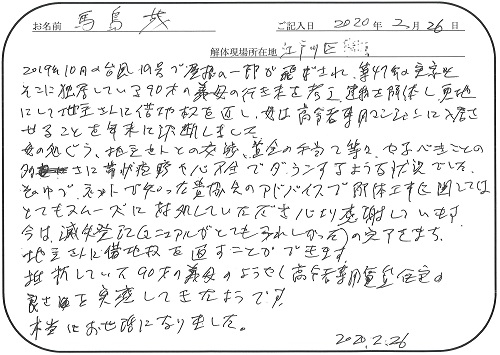 お名前 馬島 ご記入日 2020年2月26日
解体現場所在地 江戸川区
2019年10月の台風19号で屋根の一部が飛ばされ、築47年の実家と
そこに独居している90才の義母の行き末を考え建物を解体し更地
にして地主さんに借地権を返し、母は高令者専用マンションに入居さ
せることを年末に決断しました
母の引越し、地主さんとの交渉、資金の手当て等々、やるべきことの
多さに狭心症と心不全でダウンするような状況でした。
その中で、ネットで知った貴協会のアドバイスで解体工事に関しては
とてもスムーズに対処していただき心より感謝しています
今は、滅失登記(マニュアルがとてもうれしかった)の完了をまち、
地主さんに借地権を返すことができます。
抵抗していた90才の義母のようやく高令者専用賃貸住宅の
良さを実感してきたようです。
本当にお世話になりました。
2020.2.26